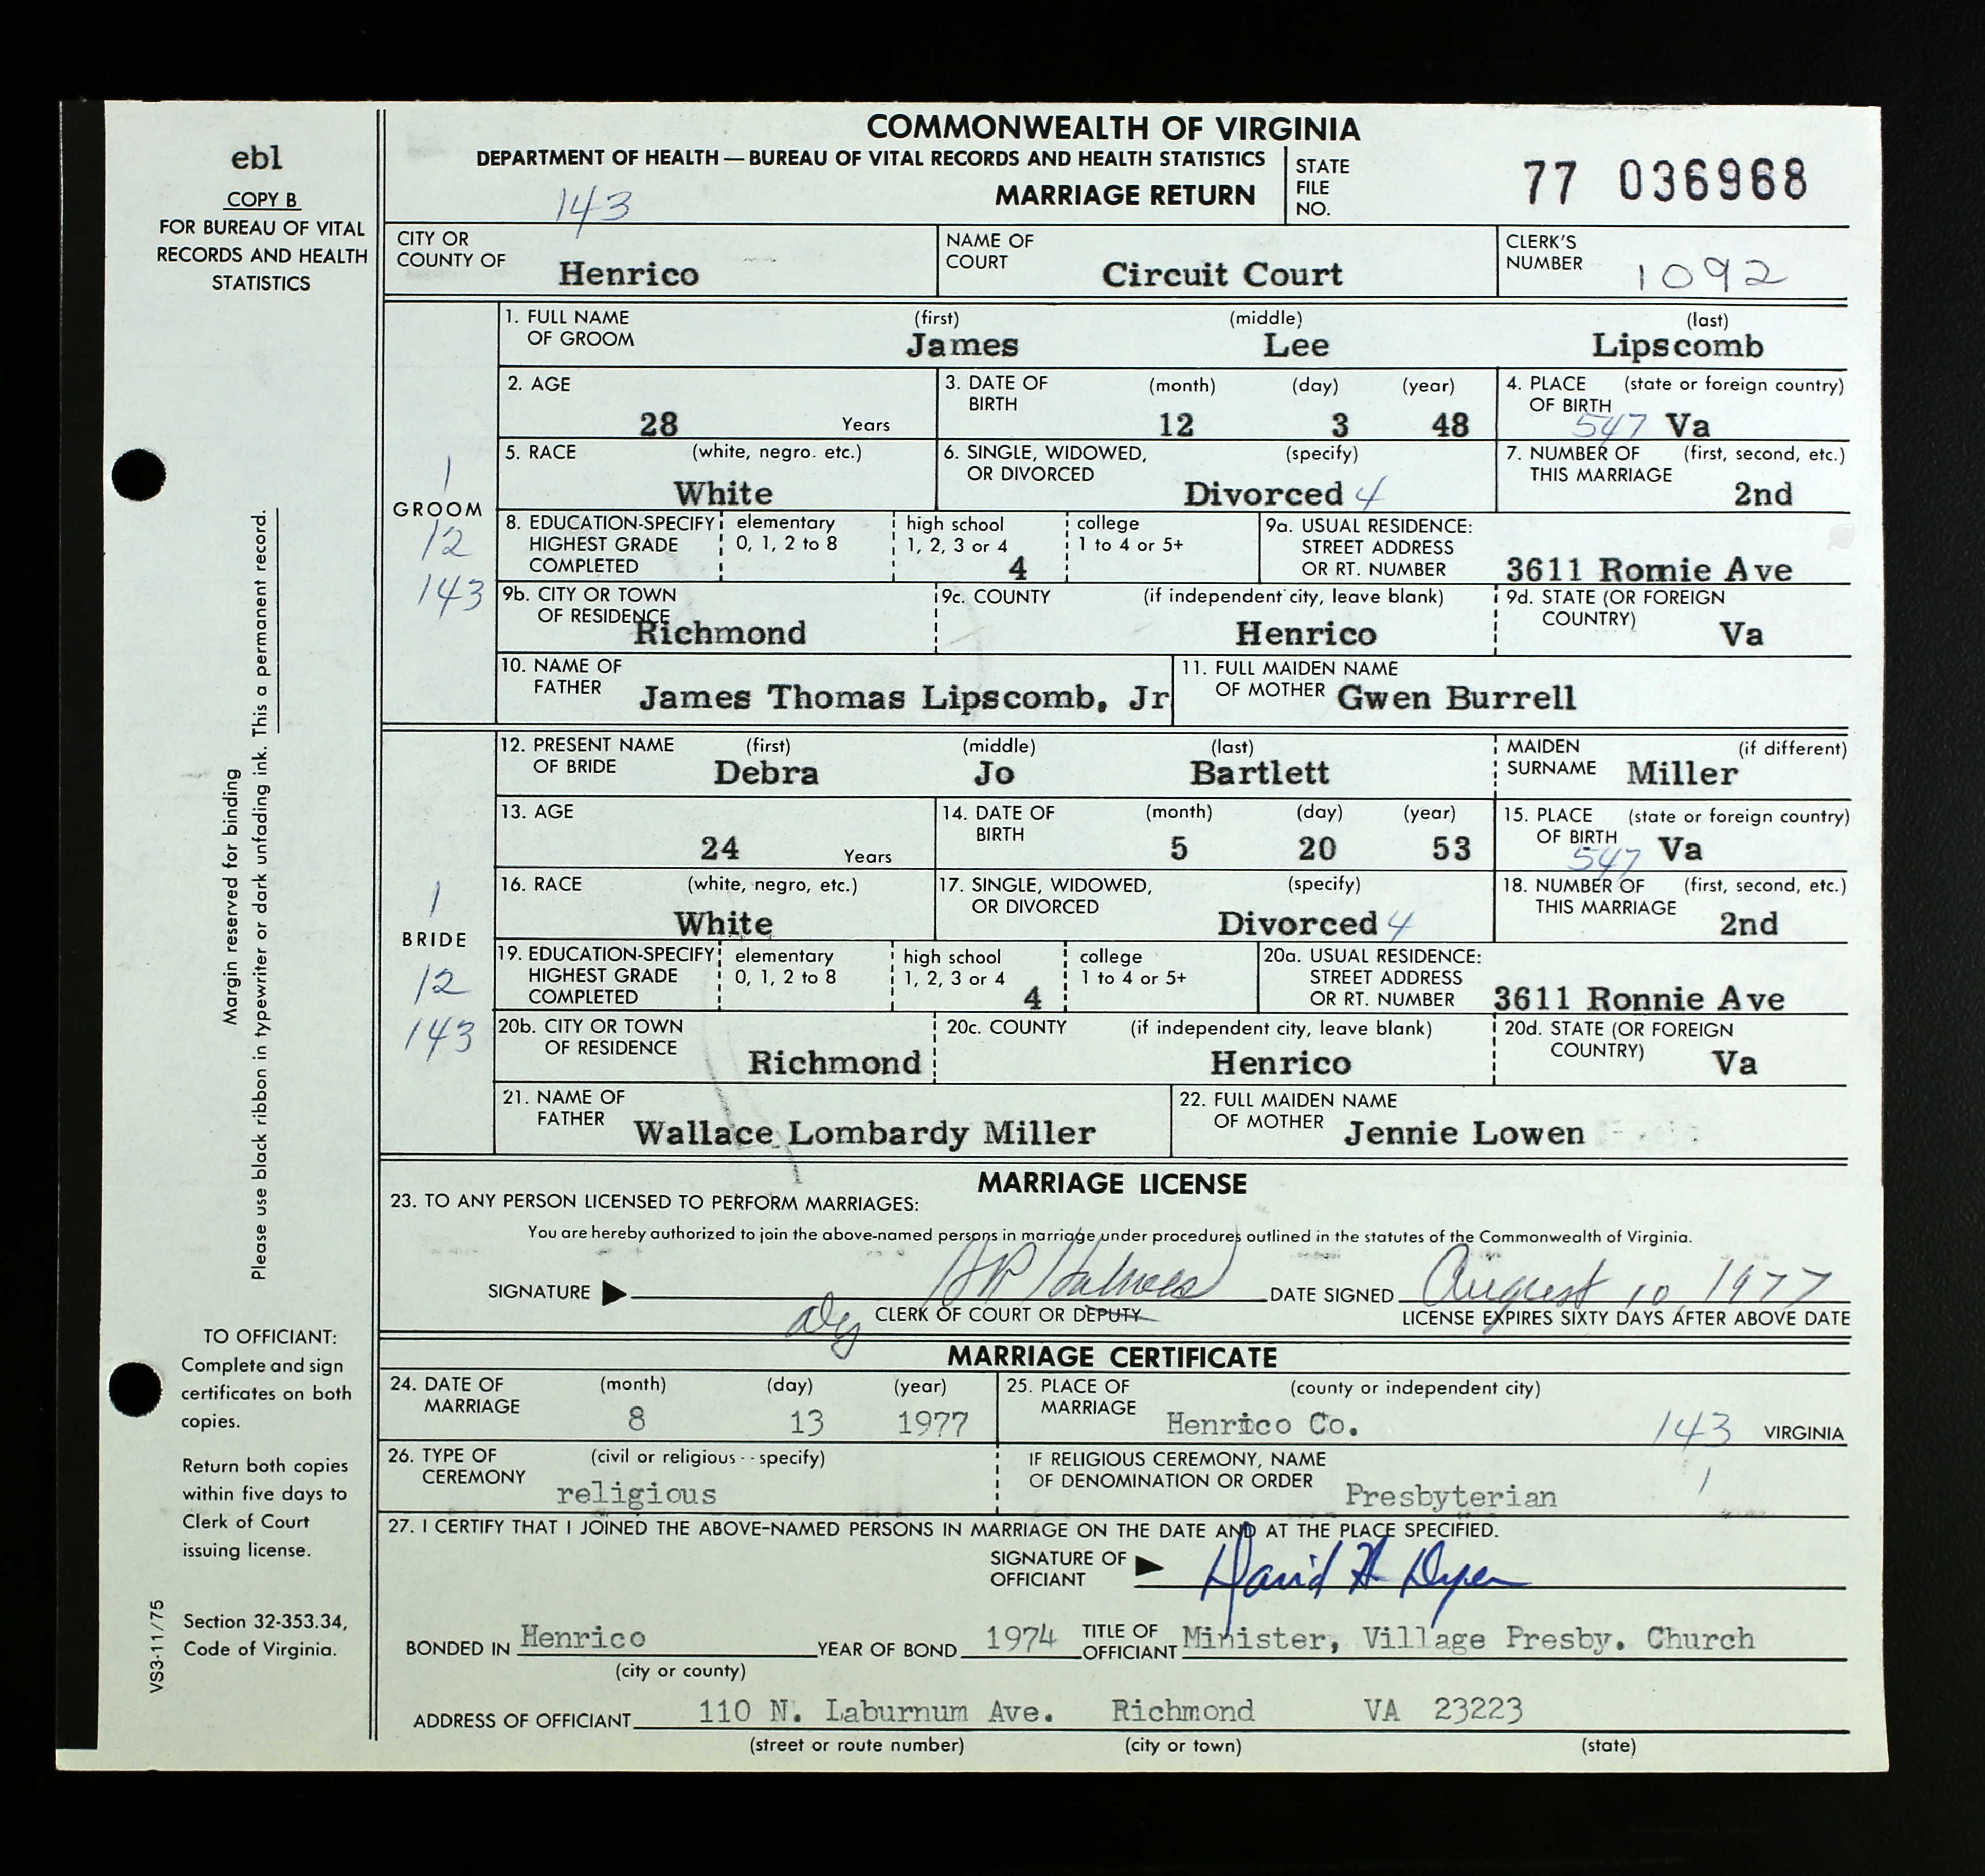 ebl
COPY B
FOR BUREAU OF VITAL
RECORDS AND HEALTH
STATISTICS
Margin reserved for binding
Please use black ribbon in typewriter or dark unfading ink. This a permanent record.
TO OFFICIANT:
Complete and sign
certificates on both
copies.
Return both copies
within five days to
Clerk of Court
issuing license.
Section 32-353.34,
Code of Virginia.
VS3-11/75
COMMONWEALTH OF VIRGINIA
DEPARTMENT OF HEALTH — BUREAU OF VITAL RECORDS AND HEALTH STATISTICS
143 MARRIAGE RETURN
STATE FILE NO. 77 036968
CITY OR COUNTY OF Henrico
NAME OF COURT Circuit Court
CLERK'S NUMBER 1092
GROOM
1
12
143
1. FULL NAME OF GROOM (first) James (middle) Lee (last) Lipscomb
2. AGE 28 Years
3. DATE OF BIRTH (month) 12 (day) 3 (year) 48
4. PLACE OF BIRTH (state or foreign country) 547 Va
5. RACE (white, negro. etc.) White
6. SINGLE, WIDOWED, OR DIVORCED (specify) Divorced 4
7. NUMBER OF THIS MARRIAGE (first, second, etc.) 2nd
8. EDUCATION-SPECIFY HIGHEST GRADE COMPLETED elementary 0, 1, 2 to 8 high school 1, 2, 3 or 4 4 college 1 to 4 or 5+
9a. USUAL RESIDENCE: STREET ADDRESS OR RT. NUMBER 3611 Romie Ave
9b. CITY OR TOWN OF RESIDENCE Richmond
9c. COUNTY (if independent city, leave blank) Henrico
9d. STATE (OR FOREIGN COUNTRY) Va
10. NAME OF FATHER James Thomas Lipscomb, Jr
11. FULL MAIDEN NAME OF MOTHER Gwen Burrell
BRIDE
1
12
143
12. PRESENT NAME OF BRIDE (first) Debra (middle) Jo (last) Bartlett
MAIDEN SURNAME (if different) Miller
13. AGE 24 Years
14. DATE OF BIRTH (month) 5 (day) 20 (year) 53
15. PLACE OF BIRTH (state or foreign country) 547 Va
16. RACE (white, negro, etc.) White
17. SINGLE, WIDOWED, OR DIVORCED (specify) Divorced 4
18. NUMBER OF THIS MARRIAGE (first, second, etc.) 2nd
19. EDUCATION-SPECIFY HIGHEST GRADE COMPLETED elementary 0, 1, 2 to 8 high school 1, 2, 3 or 4 4 college 1 to 4 or 5+
20a. USUAL RESIDENCE: STREET ADDRESS OR RT. NUMBER 3611 Ronnie Ave
20b. CITY OR TOWN OF RESIDENCE Richmond
20c. COUNTY (if independent city, leave blank) Henrico
20d. STATE (OR FOREIGN COUNTRY) Va
21. NAME OF FATHER Wallace Lombardy Miller
22. FULL MAIDEN NAME OF MOTHER Jennie Lowen
MARRIAGE LICENSE
23. TO ANY PERSON LICENSED TO PERFORM MARRIAGES:
You are hereby authorized to join the above-named persons in marriage under procedures outlined in the statutes of the Commonwealth of Virginia.
SIGNATURE DATE SIGNED August 10, 1977
Dy CLERK OF COURT OR DEPUTY LICENSE EXPIRES SIXTY DAYS AFTER ABOVE DATE
MARRIAGE CERTIFICATE
24. DATE OF MARRIAGE (month) 8 (day) 13 (year) 1977
25. PLACE OF MARRIAGE (county or independent city) Henrico Co. 143 VIRGINIA
26. TYPE OF CEREMONY (civil or religious - - specify) religious
IF RELIGIOUS CEREMONY, NAME OF DENOMINATION OR ORDER Presbyterian 1
27. I CERTIFY THAT I JOINED THE ABOVE-NAMED PERSONS IN MARRIAGE ON THE DATE AND AT THE PLACE SPECIFIED.
SIGNATURE OF OFFICIANT David H Dyer
BONDED IN Henrico YEAR OF BOND 1974 TITLE OF OFFICIANT Minister, Village Presby. Church
(city or county)
ADDRESS OF OFFICIANT 110 N. Laburnum Ave. Richmond VA 23223
(street or route number) (city or town) (state)